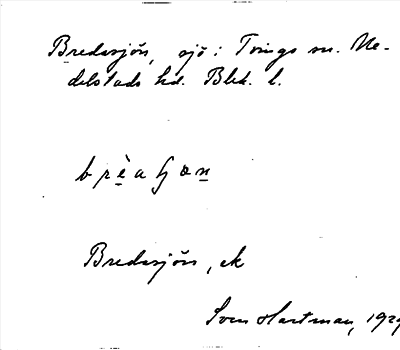 Bredasjön, sjö i Tvings sn. Me-
delstads hd. Blek. l.
Bredasjön, ek
Sven Hartman, 192